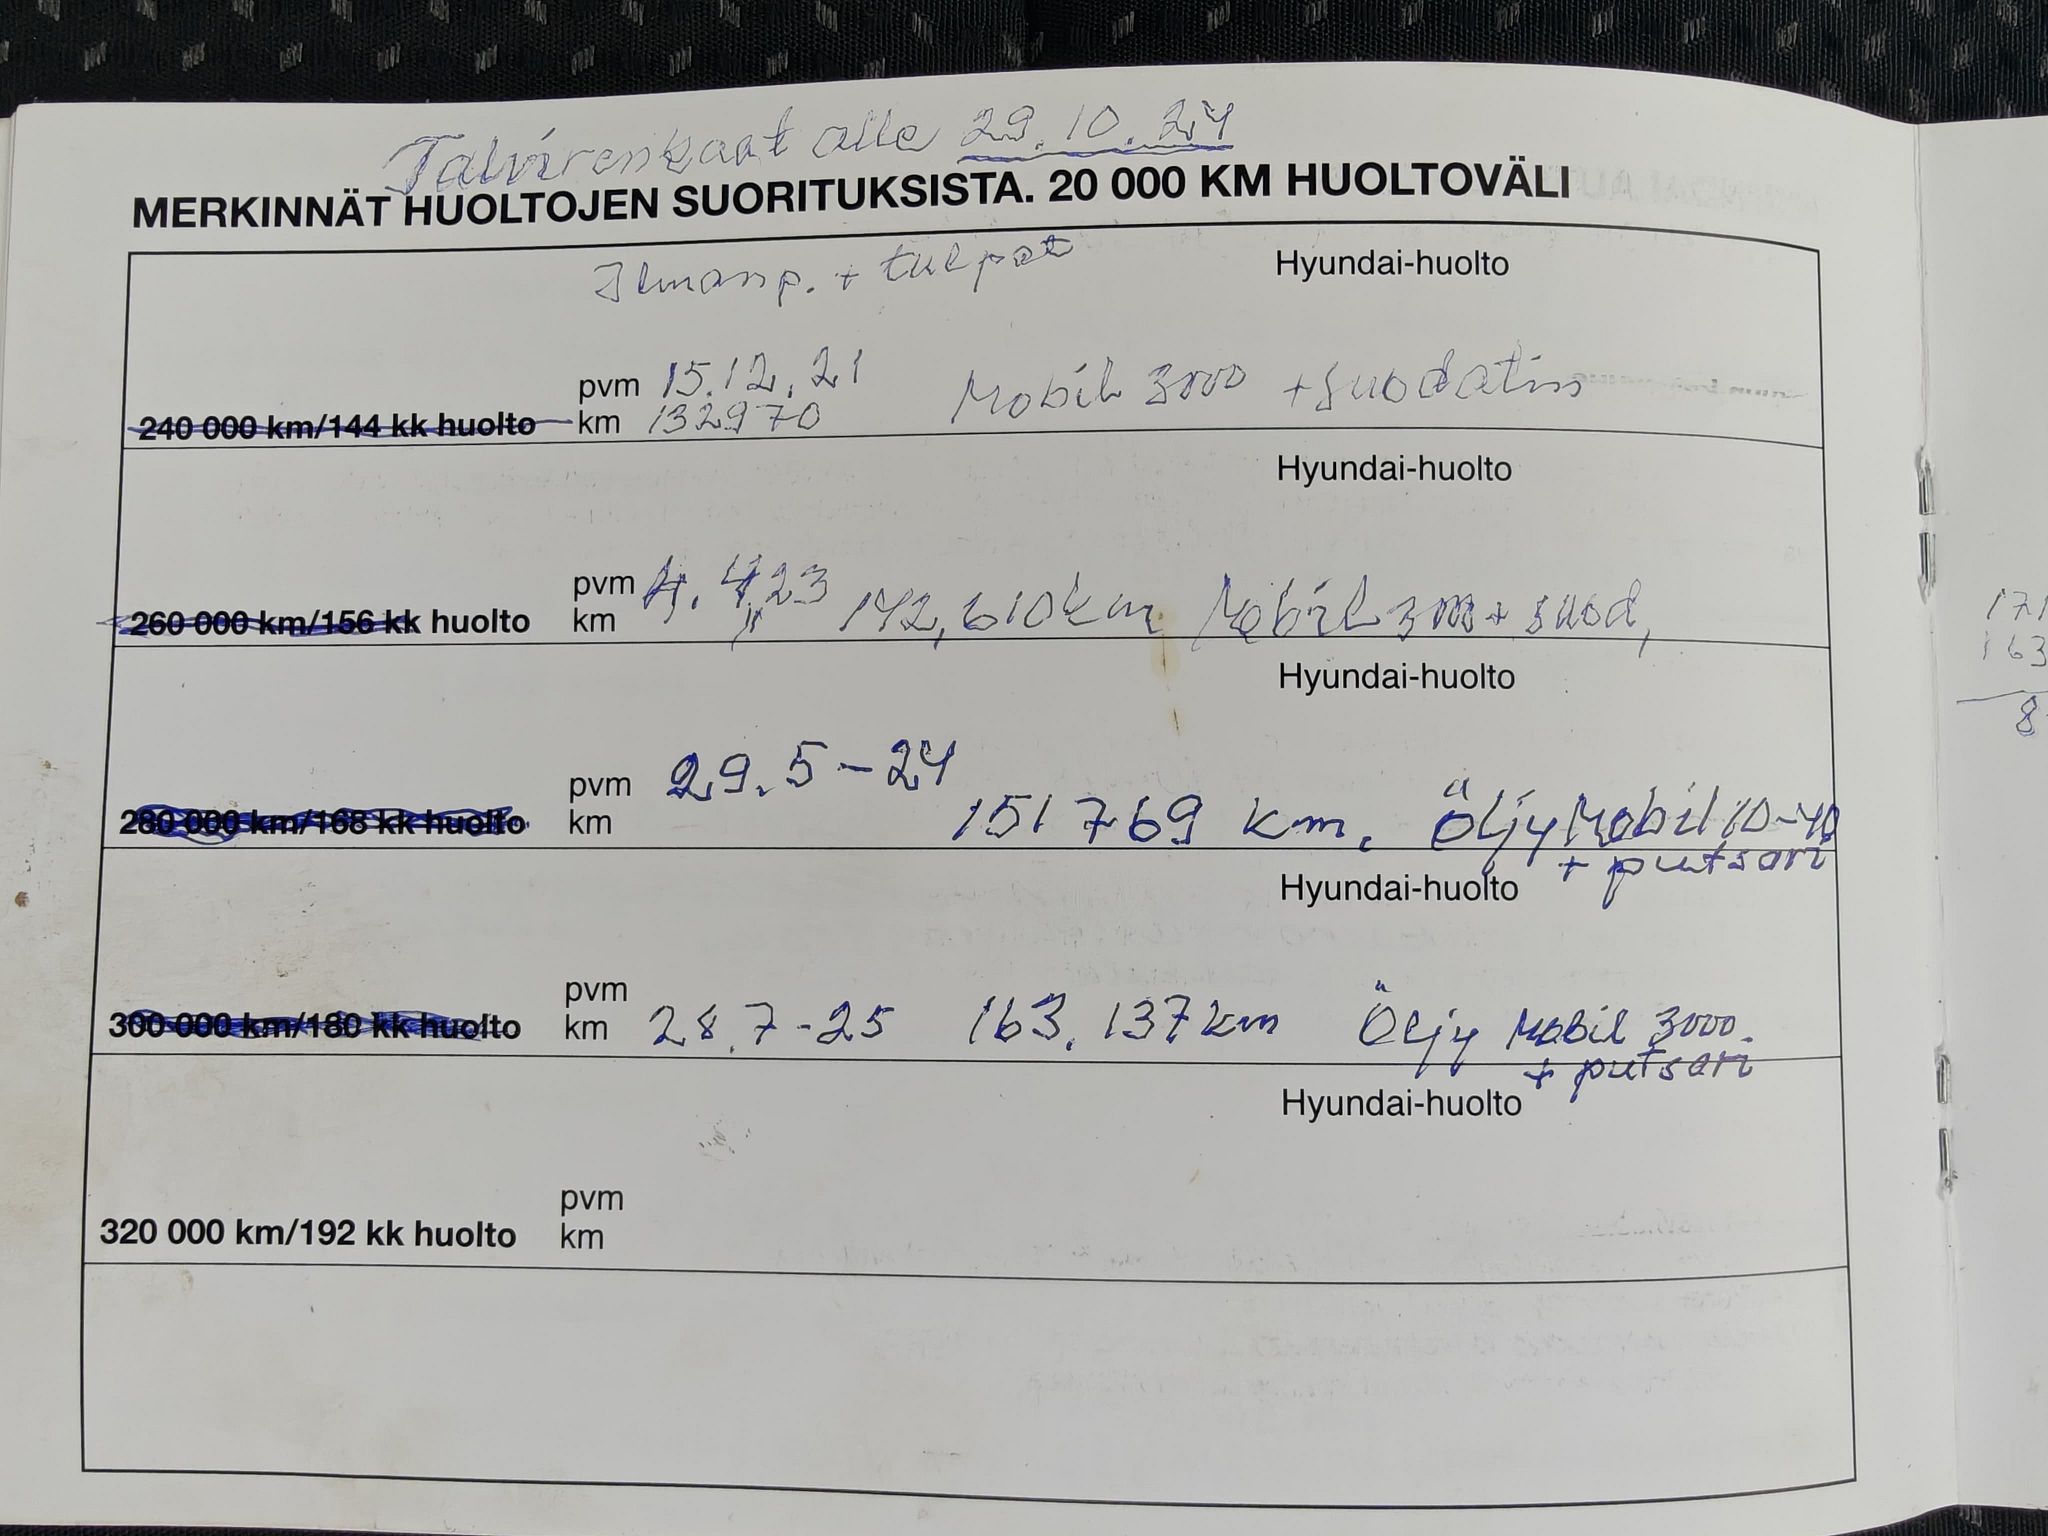 Talvirenkaat alle 29.10.24
MERKINNÄT HUOLTOJEN SUORITUKSISTA. 20 000 KM HUOLTOVÄLI
Ilmanp. + tulpat
Hyundai-huolto
pvm 15.12.21
240 000 km/144 kk huolto km 132970 Mobil 3000 + suodatin
Hyundai-huolto
pvm 4.4.23
260 000 km/156 kk huolto km 142,610km Mobil 3000 + suod,
Hyundai-huolto
pvm 29.5-24
280 000 km/168 kk huolto km 151769 km. Öljy Mobil 10-40
+ putsari
Hyundai-huolto
pvm
300 000 km/180 kk huolto km 28.7-25 163.137km Öljy Mobil 3000.
+ putsari
Hyundai-huolto
pvm
320 000 km/192 kk huolto km
171
163
8